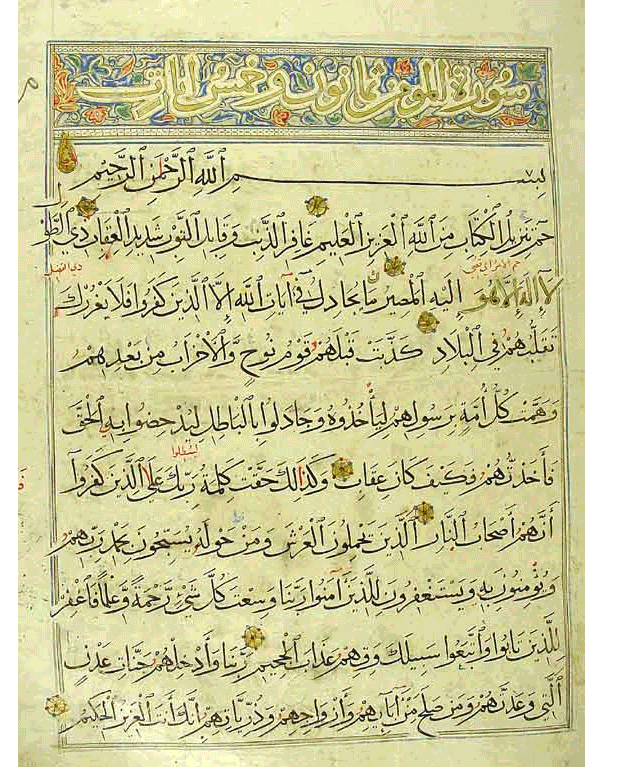 سورة المومن ثمانون وخمس ايات
بسم ٱلله ٱلرَّحْمٰنِ ٱلرَّحِيمِ
حم تَنْزِيلُ ٱلْكِتَابِ مِنَ ٱللَّهِ ٱلْعَزِيزِ ٱلْعَلِيمِ غَافِرِ ٱلذَّنْبِ وَقَابِلِ ٱلتَّوْبِ شَدِيدِ ٱلْعِقَابِ ذِي ٱلطَّوْلِ
لَا إِلَهَ إِلَّا هُوَ إِلَيْهِ ٱلْمَصِيرُ مَا يُجَادِلُ فِي آيَاتِ ٱللَّهِ إِلَّا ٱلَّذِينَ كَفَرُوا فَلَا يَغْرُرْكَ
تَقَلُّبُهُمْ فِي ٱلْبِلَادِ كَذَّبَتْ قَبْلَهُمْ قَوْمُ نُوحٍ وَٱلْأَحْزَابُ مِنْ بَعْدِهِمْ
وَهَمَّتْ كُلُّ أُمَّةٍ بِرَسُولِهِمْ لِيَأْخُذُوهُ وَجَادَلُوا بِٱلْبَاطِلِ لِيُدْحِضُوا بِهِ ٱلْحَقَّ
فَأَخَذْتُهُمْ فَكَيْفَ كَانَ عِقَابِ وَكَذَٰلِكَ حَقَّتْ كَلِمَةُ رَبِّكَ عَلَى ٱلَّذِينَ كَفَرُوٓا
أَنَّهُمْ أَصْحَابُ ٱلنَّارِ ٱلَّذِينَ يَحْمِلُونَ ٱلْعَرْشَ وَمَنْ حَوْلَهُ يُسَبِّحُونَ بِحَمْدِ رَبِّهِمْ
وَيُؤْمِنُونَ بِهِ وَيَسْتَغْفِرُونَ لِلَّذِينَ آمَنُوا رَبَّنَا وَسِعْتَ كُلَّ شَيْءٍ رَحْمَةً وَعِلْمًا فَٱغْفِرْ
لِلَّذِينَ تَابُوا وَٱتَّبَعُوا سَبِيلَكَ وَقِهِمْ عَذَابَ ٱلْجَحِيمِ رَبَّنَا وَأَدْخِلْهُمْ جَنَّاتِ عَدْنٍ
ٱلَّتِي وَعَدْتَهُمْ وَمَنْ صَلَحَ مِنْ آبَائِهِمْ وَأَزْوَاجِهِمْ وَذُرِّيَّاتِهِمْ إِنَّكَ أَنْتَ ٱلْعَزِيزُ ٱلْحَكِيمُ